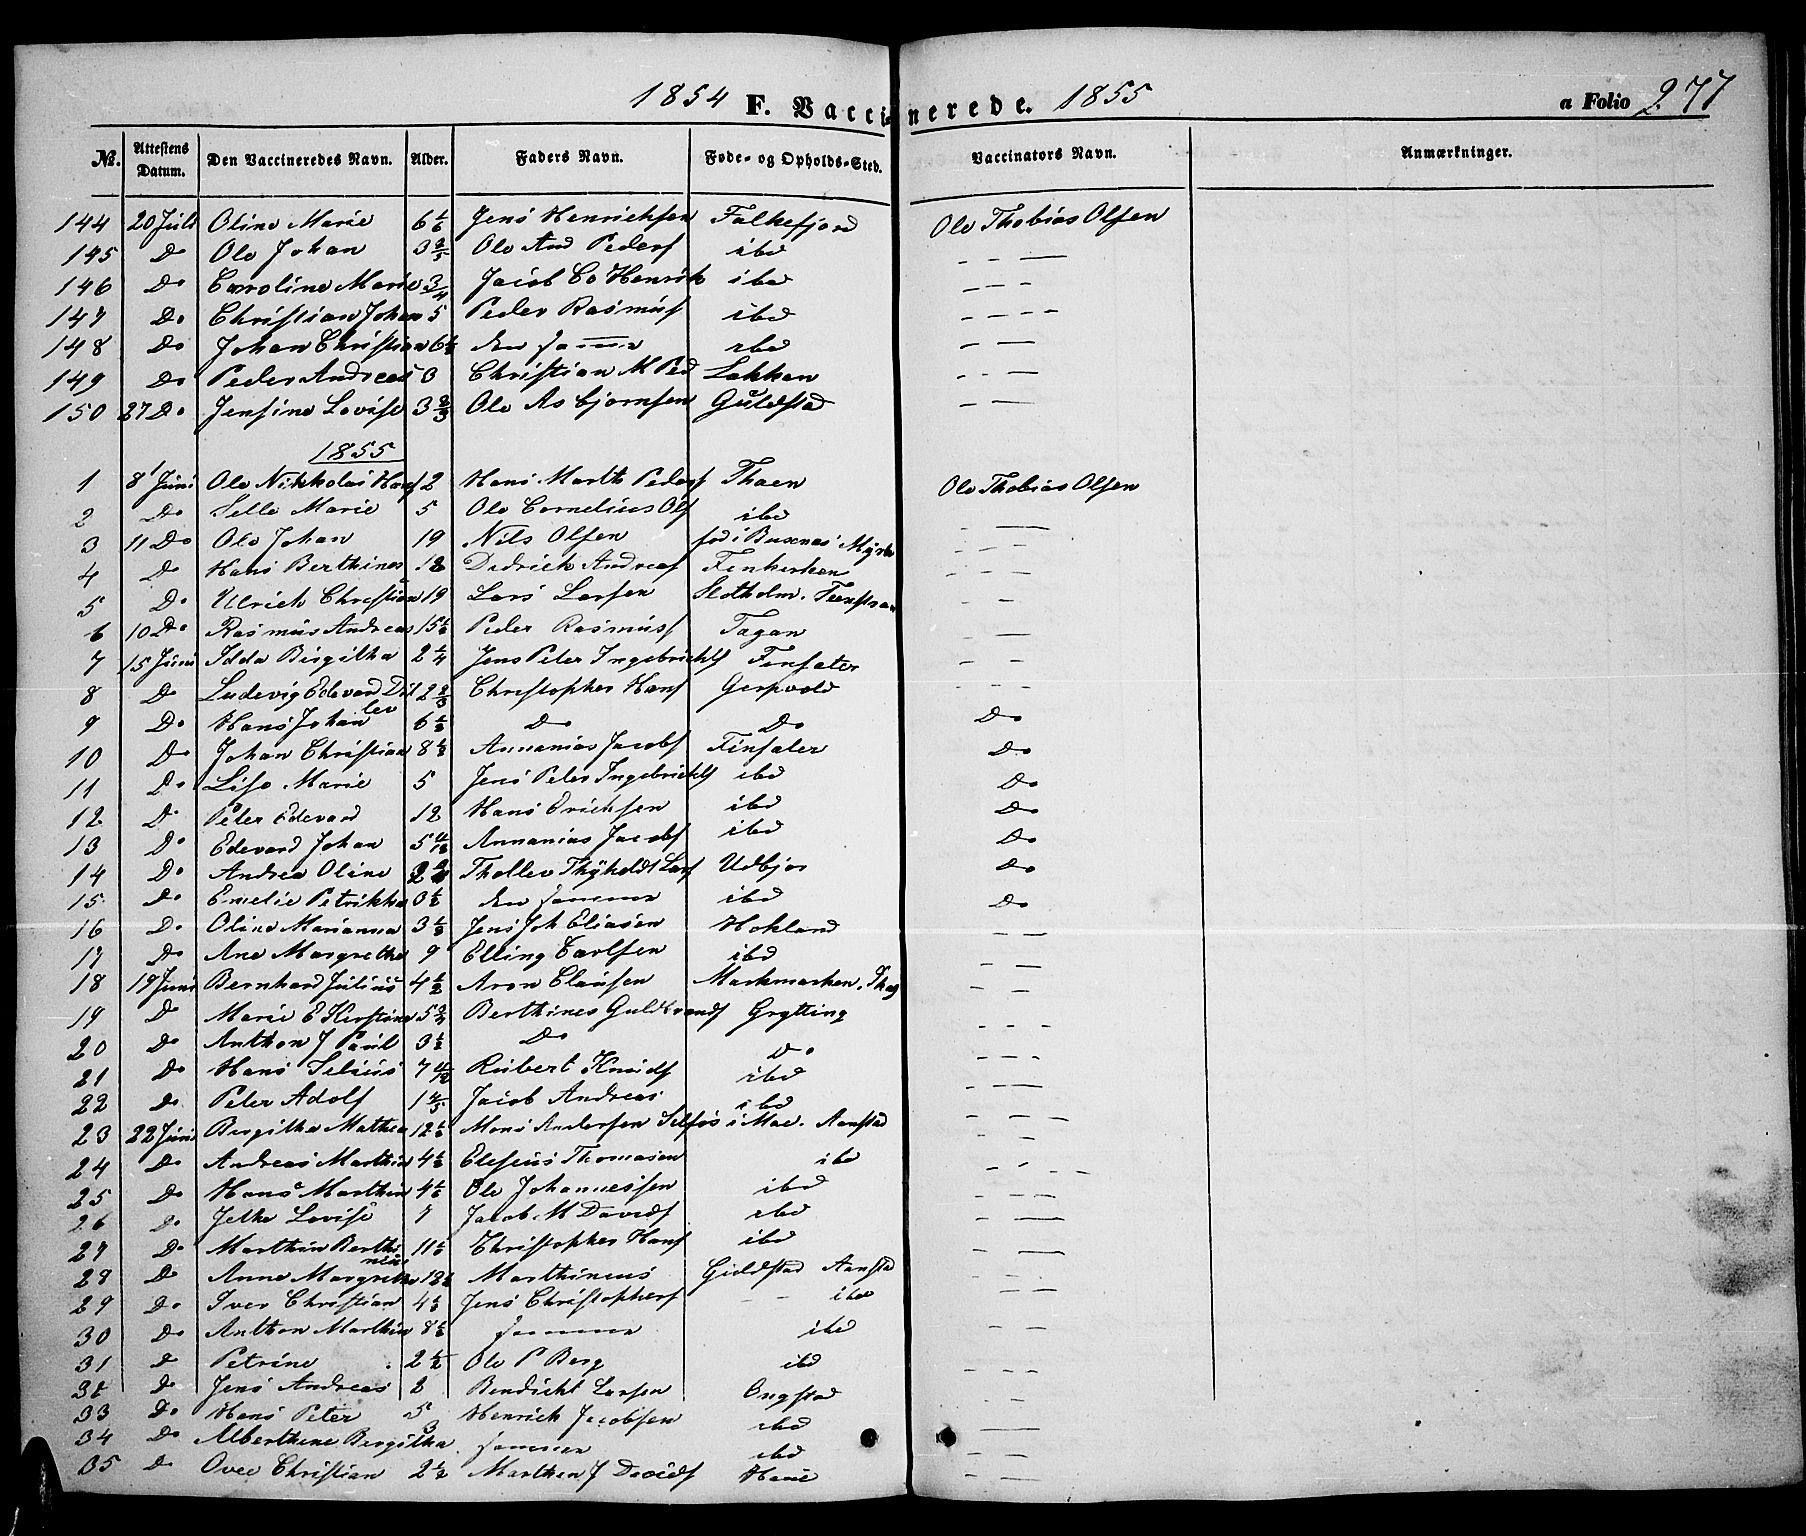 1854 F. Vaccinerede. 1855 a Folio 277
No. Attestens Datum. Den Vaccineredes Navn. Alder. Faders Navn. Føde- og Opholds-Sted. Vaccinators Navn. Anmærkninger.
144 20 Juli Oline Marie 6 Jens Henrichsen Falkefjord Ole Thobias Olsen
145 Do Ole Johan 3 Ole And Peders ibd
146 Do Caroline Marie 3/4 Jacob Co Henrik ibd
147 Do Christian Johan 5 Peder Rasmus ibd
148 Do Johan Christian 6 den samme ibd
149 Do Peder Andreas 3 Christian M Ped Løkken
150 27 Do Jensine Lovise 3 2/3 Ole Asbjornsen Guldstad
1855
1 8 Juni Ole Nikkolai Hans 12 Hans Marth Peders Thoen Ole Thobias Olsen
2 Do Selle Marie 5 Ole Cornelius Ols ibd
3 11 Do Ole Johan 19 Nils Olsen fød i Buxnæs
4 Do Hans Berthines Didrich Andreas
5 Do Ulrich Christian 19 Lars Larsen Slotholm.
6 10 Do Rasmus Andreas 15 Peder Rasmus Tagan
7 15 Juni Idda Birgitha 2 1/4 Jens Peter Ingebrichts Finsæter
8 Do Ludevig Edevard Ditlev 2 2/3 Christopher Hans
9 Do Hans Johan 6 Do Do Do
10 Do Johan Christian 8 Annanias Jacobs Finsæter Do
11 Do Lise Marie 5 Jens Peter Ingebrichts ibd Do
12 Do Peter Edevard 12 Hans Erichsen ibd Do
13 Do Edevard Johan 5 Annanias Jacobs ibd Do
14 Do Andrea Oline Thollev Thÿholdt Lars Udbjor Do
15 Do Emelie Petrikka 0 den samme ibd Do
16 Do Oline Marianna 3 Jens Joh Eliasen Hokland
17 Do Ane Margrethe 9 Elling Carlsen ibd
18 19 Juni Bernhard Julius 4 1/2 Aron Clausen Markmarken.
19 Do Marie E Kirstine 5 Berthines Guldbrands Grytting
20 Do Anthon J Paul 3 1/2 Do Do
21 Do Hans 7 Rubert Knuds ibd
22 Do Peter Adolf 1 4/5 Jacob Andreas ibd
23 22 Juni Birgitha Mathea 12 Mons Andersen Aanstad
24 Do Andreas Marthin 4 Eleseus Thomasen ibd
25 Do Hans Marthin 4 Ole Johannessen ibd
26 Do Jetha Lovise 7 Jacob M Davids ibd
27 Do Marthin Berthineus 11 Christopher Hans ibd
28 Do Anne Margrethe 12 Marthineus Guldstad Aanstad
29 Do Iver Christian 4 Jens Christophers ibd
30 Do Anthon Marthin 8 samme ibd
31 Do Petrine 2 1/2 Ole P Berg ibd
32 Do Jens Andreas 2 Bendicht Larsen Ongstad
33 Do Hans Peter 5 Henrich Jacobsen ibd
34 Do Alberthine Birgitha 3 samme ibd
35 Do Ovee Christian 2 1/2 Marthin J Davids